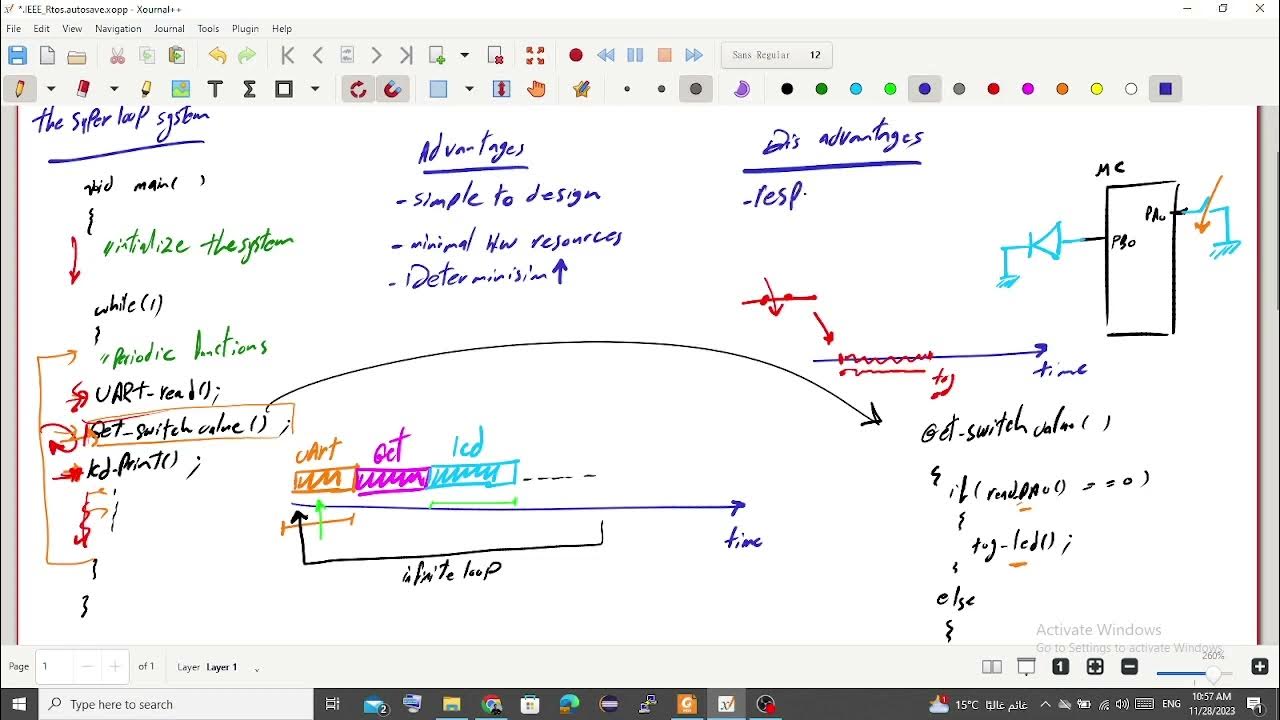 *.IEEE_Rtos.autosave.xopp - Xournal++
File Edit View Navigation Journal Tools Plugin Help
Sans Regular 12
the super loop system
Advantages
Dis advantages
void main( )
{
"intialize the system
while(1)
{
"Periodic functions
UART-read();
Get-switch value() ;
lcd-Print() ;
}
}
- simple to design
- minimal Hw resources
- Determinisim ↑
- resp.
MC
PA0
PB0
time
tog
UArt Get lcd
time
infinite loop
Get-switch value( )
{
if( readPA0() = = 0 )
{
tog-led();
}
else
{
Activate Windows
Go to Settings to activate Windows.
Page 1 of 1 Layer Layer 1
1
260%
Type here to search
15°C
ENG
10:57 AM
11/28/2023